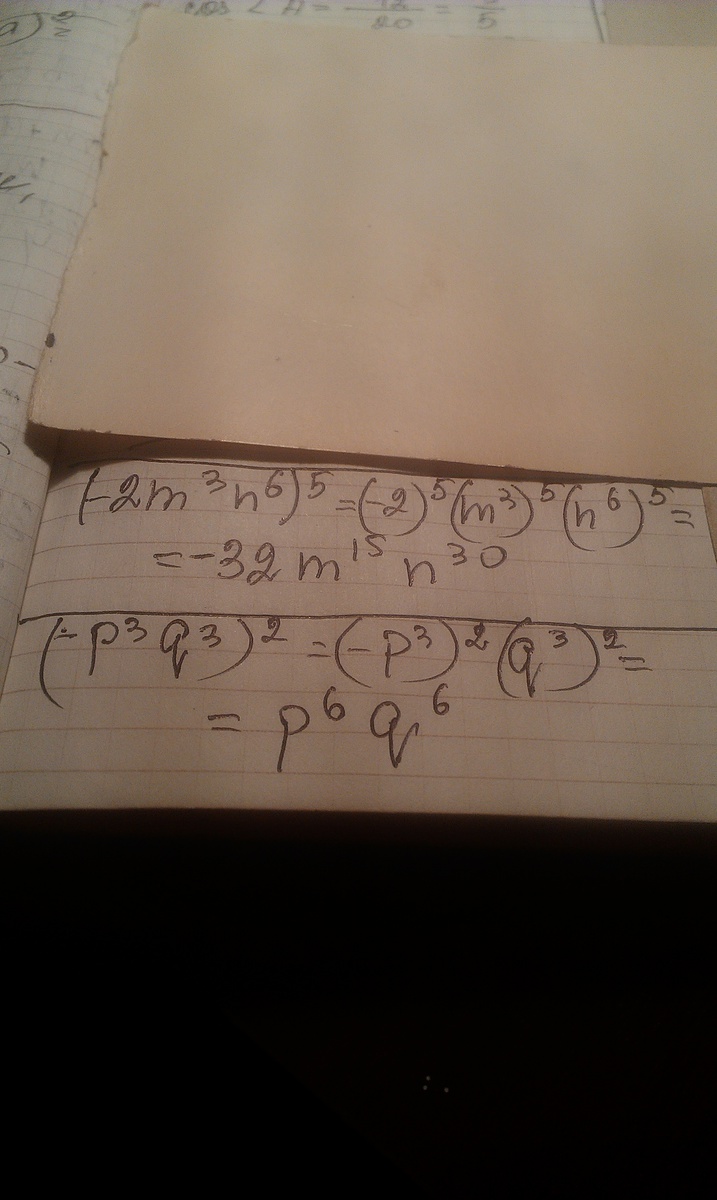 a)
20 = 5
(-2m³n⁶)⁵=(-2)⁵(m³)⁵(n⁶)⁵=
=-32m¹⁵n³⁰
(-p³q³)²=(-p³)²(q³)²=
=p⁶q⁶